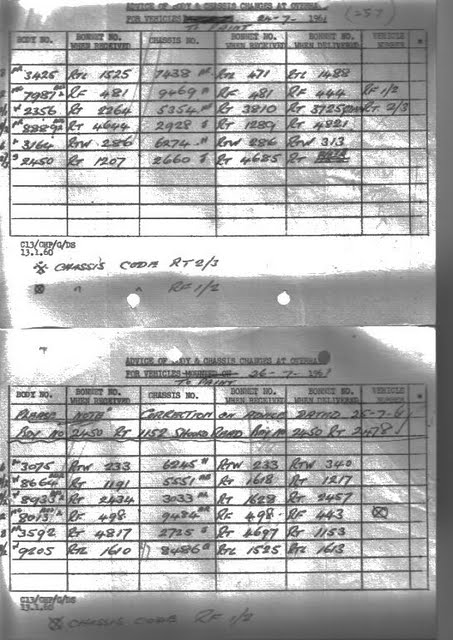 ADVICE OF BODY & CHASSIS CHANGES AT OVERHAUL
FOR VEHICLES 24-7-1961 (257)
TO PAINT
BODY NO. BONNET NO. WHEN RECEIVED CHASSIS NO. BONNET NO. WHEN RECEIVED BONNET NO. WHEN DELIVERED VEHICLE NUMBER
3425 RTL 1525 7438 RTL 471 RTL 1488
7987 RF 481 9469 RF 481 RF 444 RF 1/2
2356 RT 2264 5354 RT 3810 RT 3725 RT 2/3
8889 RT 4644 2928 RT 1289 RT 4821
3164 RTW 286 6274 RTW 286 RTW 313
2450 RT 1207 2660 RT 4685 RT
C13/CHP/G/DS
13.1.60
CHASSIS CODE RT 2/3
" " RF 1/2
ADVICE OF BODY & CHASSIS CHANGES AT OVERHAUL
FOR VEHICLES MOUNTED ON 26-7-196
TO PAINT
BODY NO. BONNET NO. WHEN RECEIVED CHASSIS NO. BONNET NO. WHEN RECEIVED BONNET NO. WHEN DELIVERED VEHICLE NUMBER
PLEASE NOTE CORRECTION ON ADVICE DATED 25-7-61
BODY NO 2450 RT 1159 SHOULD READ BODY NO 2450 RT 2478!
3075 RTW 233 6245 RTW 233 RTW 340
8664 RT 1191 5551 RT 1618 RT 1217
8933 RT 2434 3033 RT 1628 RT 2457
8013 RF 498 9484 RF 498 RF 443
3592 RT 4817 2725 RT 4697 RT 1153
9205 RTL 1610 8486 RTL 1525 RTL 1613
C13/CHP/G/DS
13.1.60
CHASSIS CODE RF 1/2